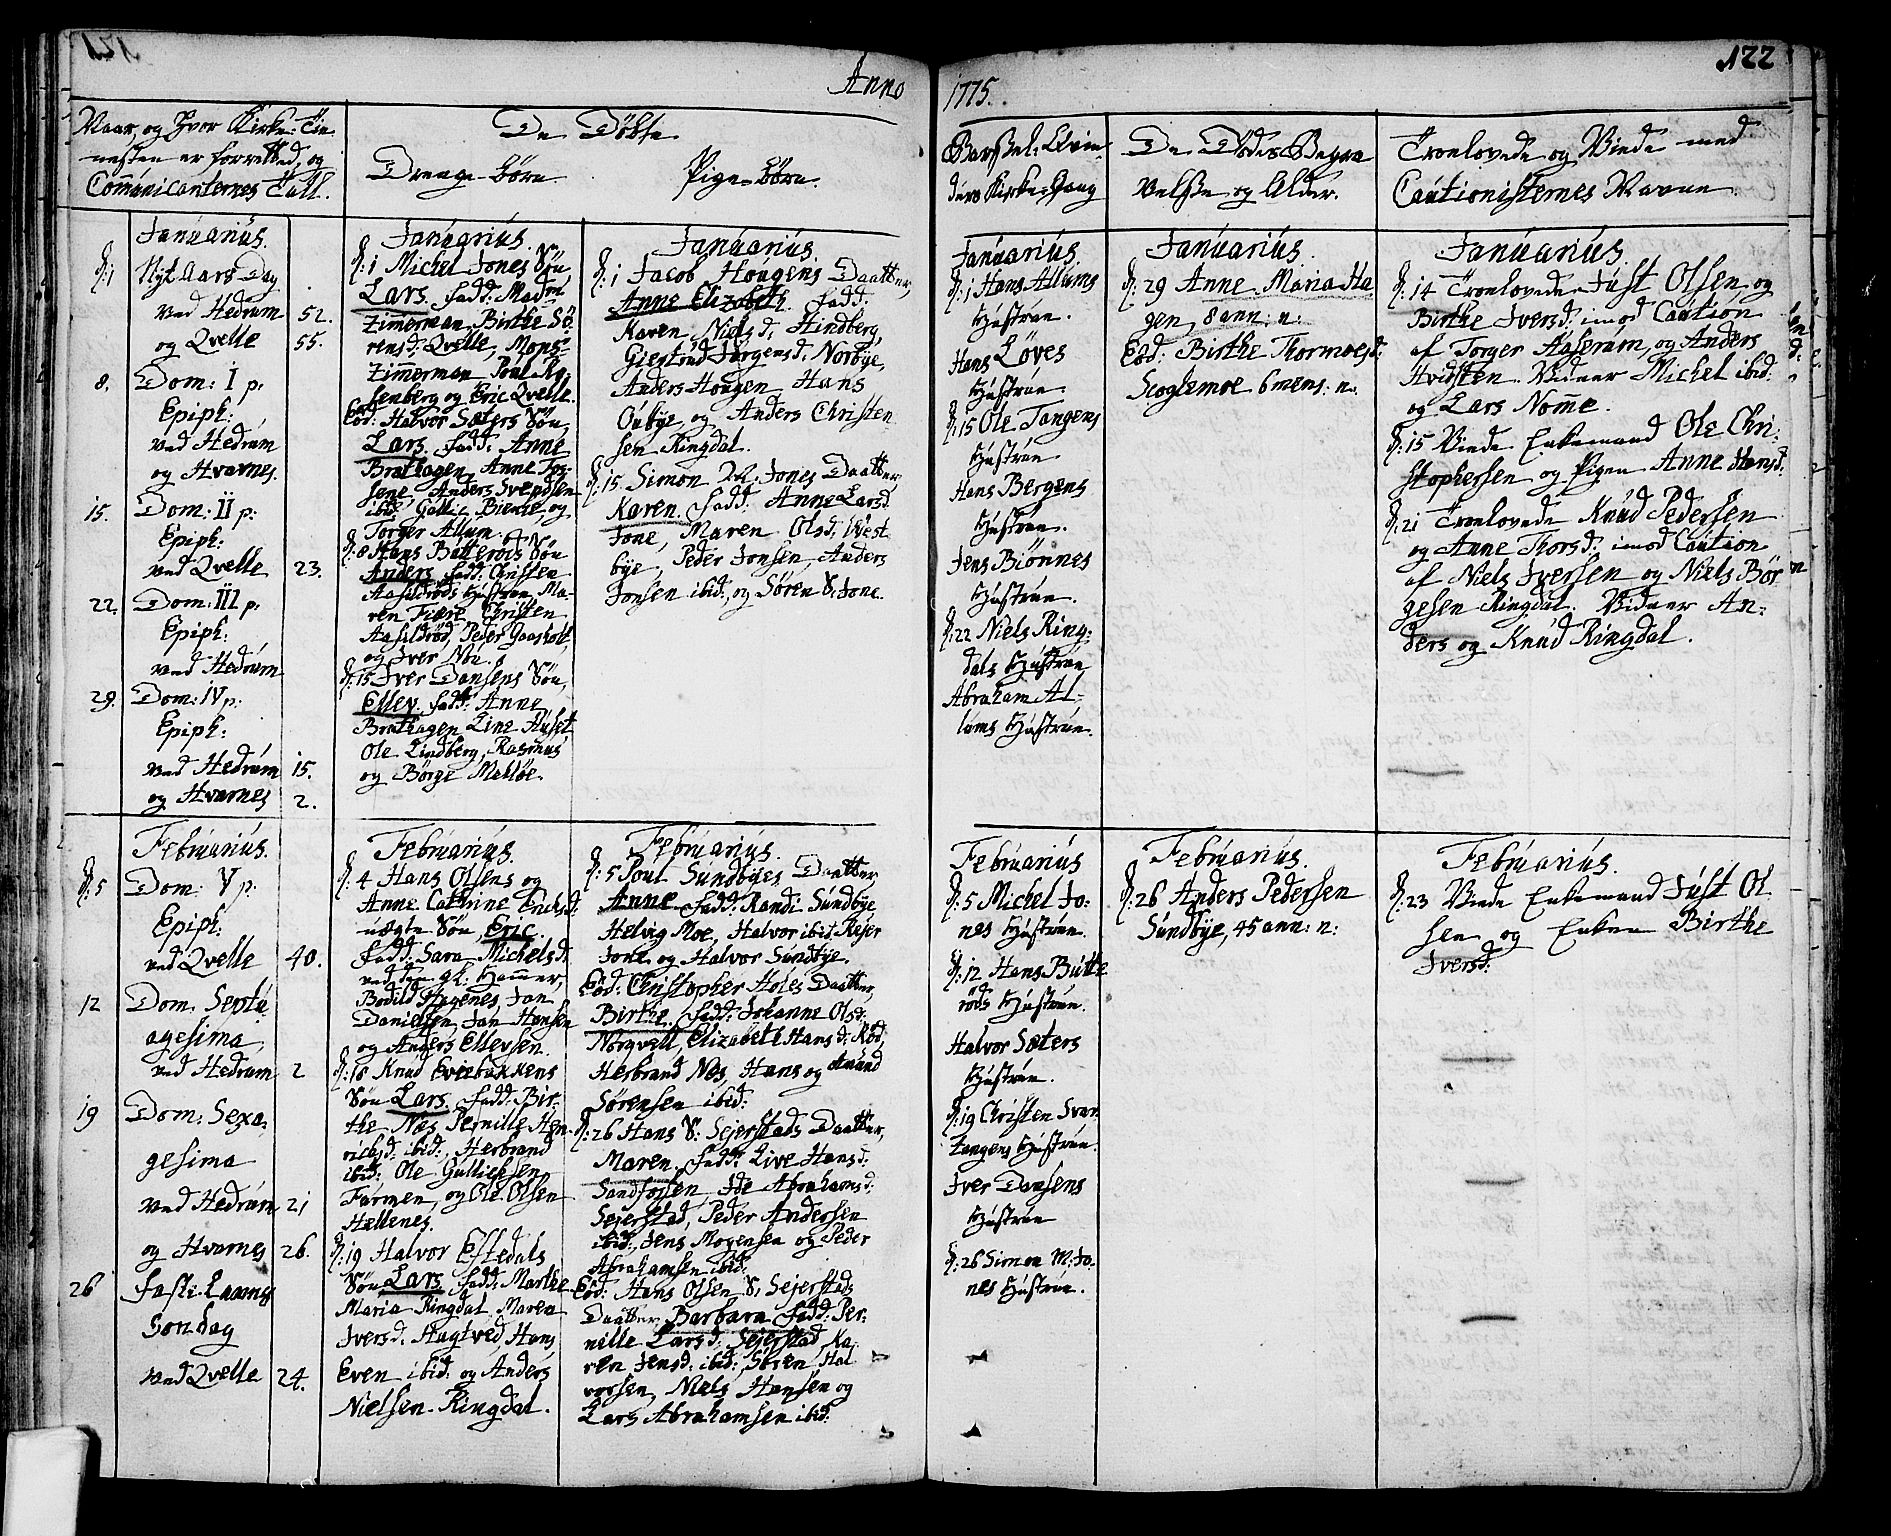 121
122
Anno
1775.
Naar, og Hvor Kirke-Tie-
nesten er forretted, og
Com̄unicanternes Tall.
De Döbte
Drenge-börn.
Pige-börn.
Barsel-Qvin-
ders Kirke-Gang
De Dödes Begra-
velse og Alder.
Troelovede og Viede med
Cautionisternes Navne
Januarius.
d: 1 Nyt Aars Dag
ved Hedrum 52.
og Qvelle 55.
8. Dom: I p:
Epiph:
ved Hedrum
og Hvarnes.
15. Dom: II p:
Epiph:
ved Qvelle 23.
22. Dom: III p:
Epiph:
ved Hedrum
29. Dom: IV p:
Epiph:
ved Hedrum 15.
og Hvarnes 2.
Januarius.
d: 1 Michel Jones Sön,
Lars. fadd: Madm
Zimerman, Birthe Sö-
rensd: Qvelle, Mons:
Zimerman Poul Ry-
senberg og Eric Qvelle.
Eod: Halvor Sæters Sön,
Lars. fadd: Anne
Brathagen, Anne Tor-
sene, Anders Svendsen
ibid, Gullic Bierke, og
Torger Allum.
d: 8 Hans Butteröds Sön
Anders. fadd: Christen
Aasildröds Hustrue, Ma-
ren Tiære, Christen
Aasildröd, Peder Gaasholt,
og Iver Mu.
d: 15 Iver Dansens Sön,
Ellev. fadd: Anne
Brathagen, Line Huset
Ole Lindberg, Rasmus
og Börge Melöe.
Januarius.
d: 1 Jacob Hougens Daatter,
Anne Elizabeth. fadd:
Karen Nielsd: Hindberg,
Giertrud Jörgensd: Norbye,
Anders Hougen Hans
Oubye, og Anders Christen
sen Ringdal.
d: 15. Simon M. Jones Daatter,
Karen. fadd: Anne Larsd
Jone, Maren Olsd. West
bye, Peder Jonsen, Anders
Jonsen ibid:, og Sören S. Jone.
Januarius.
d: 1 Hans Allums
Hustrue.
Hans Löves
Hustrue.
d: 15 Ole Tangens
Hustrue
Hans Bergens
Hustrue.
Jens Biönnes
Hustrue.
d: 22 Niels Ring-
dals Hustrue
Abraham Al-
lums Hustrue.
Januarius.
d: 29 Anne Maria Ha
gen, 8 ann: n:
Eod: Birthe Thormoesd:
Scoglemoe 6 mens: n:
Januarius.
d: 14 Troelovede Just Olsen og
Birthe Iversd: imod Caution
af Torger Aaserum, og Anders
Hvidsten. Vidner Michel ibid:
og Lars Nom̄e.
d: 15 Viede Enkemand Ole Chri-
stophersen og Pigen Anne Hansd.
d: 21 Troelovede Knud Pedersen
og Anne Thorsd: imod Caution
af Niels Iversen og Niels Bör
gesen Ringdal. Vidner An-
ders og Knud Ringdal.
Februarius.
d: 5 Dom: V p:
Epiph:
ved Qvelle 40.
12 Dom. Septu
agesima
ved Hedrum 2
19 Dom: Sexa-
gesima
ved Hedrum 21
og Hvarnes 26.
26 Faste-Lavns
Söndag
ved Qvelle 24.
Februarius.
d: 4 Hans Olsens og
Anne Cathrine Ericsd:
uægte Sön, Eric.
fadd: Sara Michelsd:
ved den gl. Ham̄er,
Bodild Hagenes, Jan
Danielsen, Jan Hansen
og Anders Ellevsen.
d: 18 Knud Eviebakkens
Sön Lars. fadd: Bir-
the Næs Pernille Hen-
richsd: ibid:, Herbrand
ibid: Ole Gullichsen
Farmen, og Ole Olsen
Hællenes.
d: 19 Halvor Eftedals
Sön Lars. fadd: Marthe
Maria Ringdal, Maren
Iversd: Hagtved, Hans
Even ibid: og Anders
Nielsen Ringdal.
Februarius.
d: 5 Poul Sundbyes Daatter,
Anne fadd: Randi Sundbye
Helvig Moe, Halvor ibid: Rejer
Jone og Halvor Sundbye.
Eod: Christopher Holes Daatter,
Birthe. fadd: Johanne Olsd:
Norqvell, Elizabeth Hansd: Röd,
Herbrand Næs, Hans og Amund
Sörensen ibid:
d: 26 Hans S: Sejerstads Daatter,
Maren. fadd: Live Hansd:
Sandfossen, Ide Abrahamsd:
Sejerstad, Peder Andersen
ibid:, Jens Mogensen og Peder
Abrahamsen ibid:
Eod: Hans Olsen S. Sejerstads
Daatter Barbara fadd: Per-
nille Larsd: Sejerstad, Ka-
ren Jensd: ibid:, Sören Hal
vorsen, Niels Hansen og
Lars Abrahamsen ibid:
Februarius
d: 5 Michel Jo-
nes Hustrue.
d: 12 Hans Butte
röds Hustrue.
Halvor Sæters
Hustrue.
d: 19 Christen Svar
Zangens Hustrue.
Iver Dansens
Hustrue
d: 26 Simon M: Jo-
nes Hustrue.
Februarius.
d: 26 Anders Pedersen
Sundbye, 45 ann: n:
Februarius.
d: 23 Viede Enkemand Just Ol
sen og Enken Birthe
Iversd: